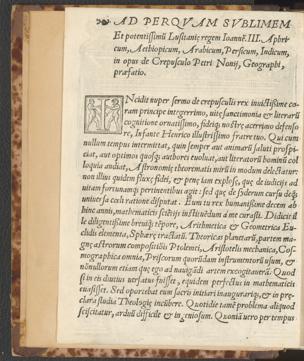 AD PERQVAM SVBLIMEM
Et potentissimū Lusitanię regem Ioannē .III. Aphri-
cum, Aethiopicum, Arabicum, Persicum, Indicum,
in opus de Crepusculo Petri Nonij, Geographi,
præfatio.
INcidit nuper sermo de crepusculis rex inuictissime co-
ram principe integerrimo, uitę sanctimonia & literarū
cognitione ornatissimo, fideiq; nostrę acerrimo defenso
re, Infante Henrico illustrissimo fratre tuo. Qui cum
nullum tempus intermittat, quin semper aut animarū saluti prospi-
ciat, aut optimos quosq; authores euoluat, aut literatorū hominū col
loquia audiat, Astronomię theorematis mirū in modum delectatur:
non illius quidem fluxę fidei, & penę iam explosę, quę de iudicijs ad
uitam fortunamq; pertinentibus agit: sed quę de syderum cursu deq;
uniuersa cœli ratione disputat. Eum tu rex humanissime decem ab
hinc annis, mathematicis scētijs instituēdum à me curasti. Didicit il
le diligentissime breuiq; tēpore, Arithmetica & Geometrica Eu-
clidis elementa, Sphærę tractatū, Theoricas planetarū, partem ma
gnę astrorum compositiōis Ptolemei, Aristotelis mechanica, Cos-
mographica omnia, Priscorum quorūdam instrumentorū usum, &
nōnullorum etiam quę ego ad nauigādi artem excogitauerā. Quod
si in eis diutius uersatus fuisset, equidem perfectus in mathematicis
euasisset. Sed oportebat eum sacris initiari inaugurariq;, & in prę-
clara studia Theologię incūbere. Quotidie tamē problema aliquod
sciscitatur, arduū difficile & ingeniosum. Quoniā uero per tempus